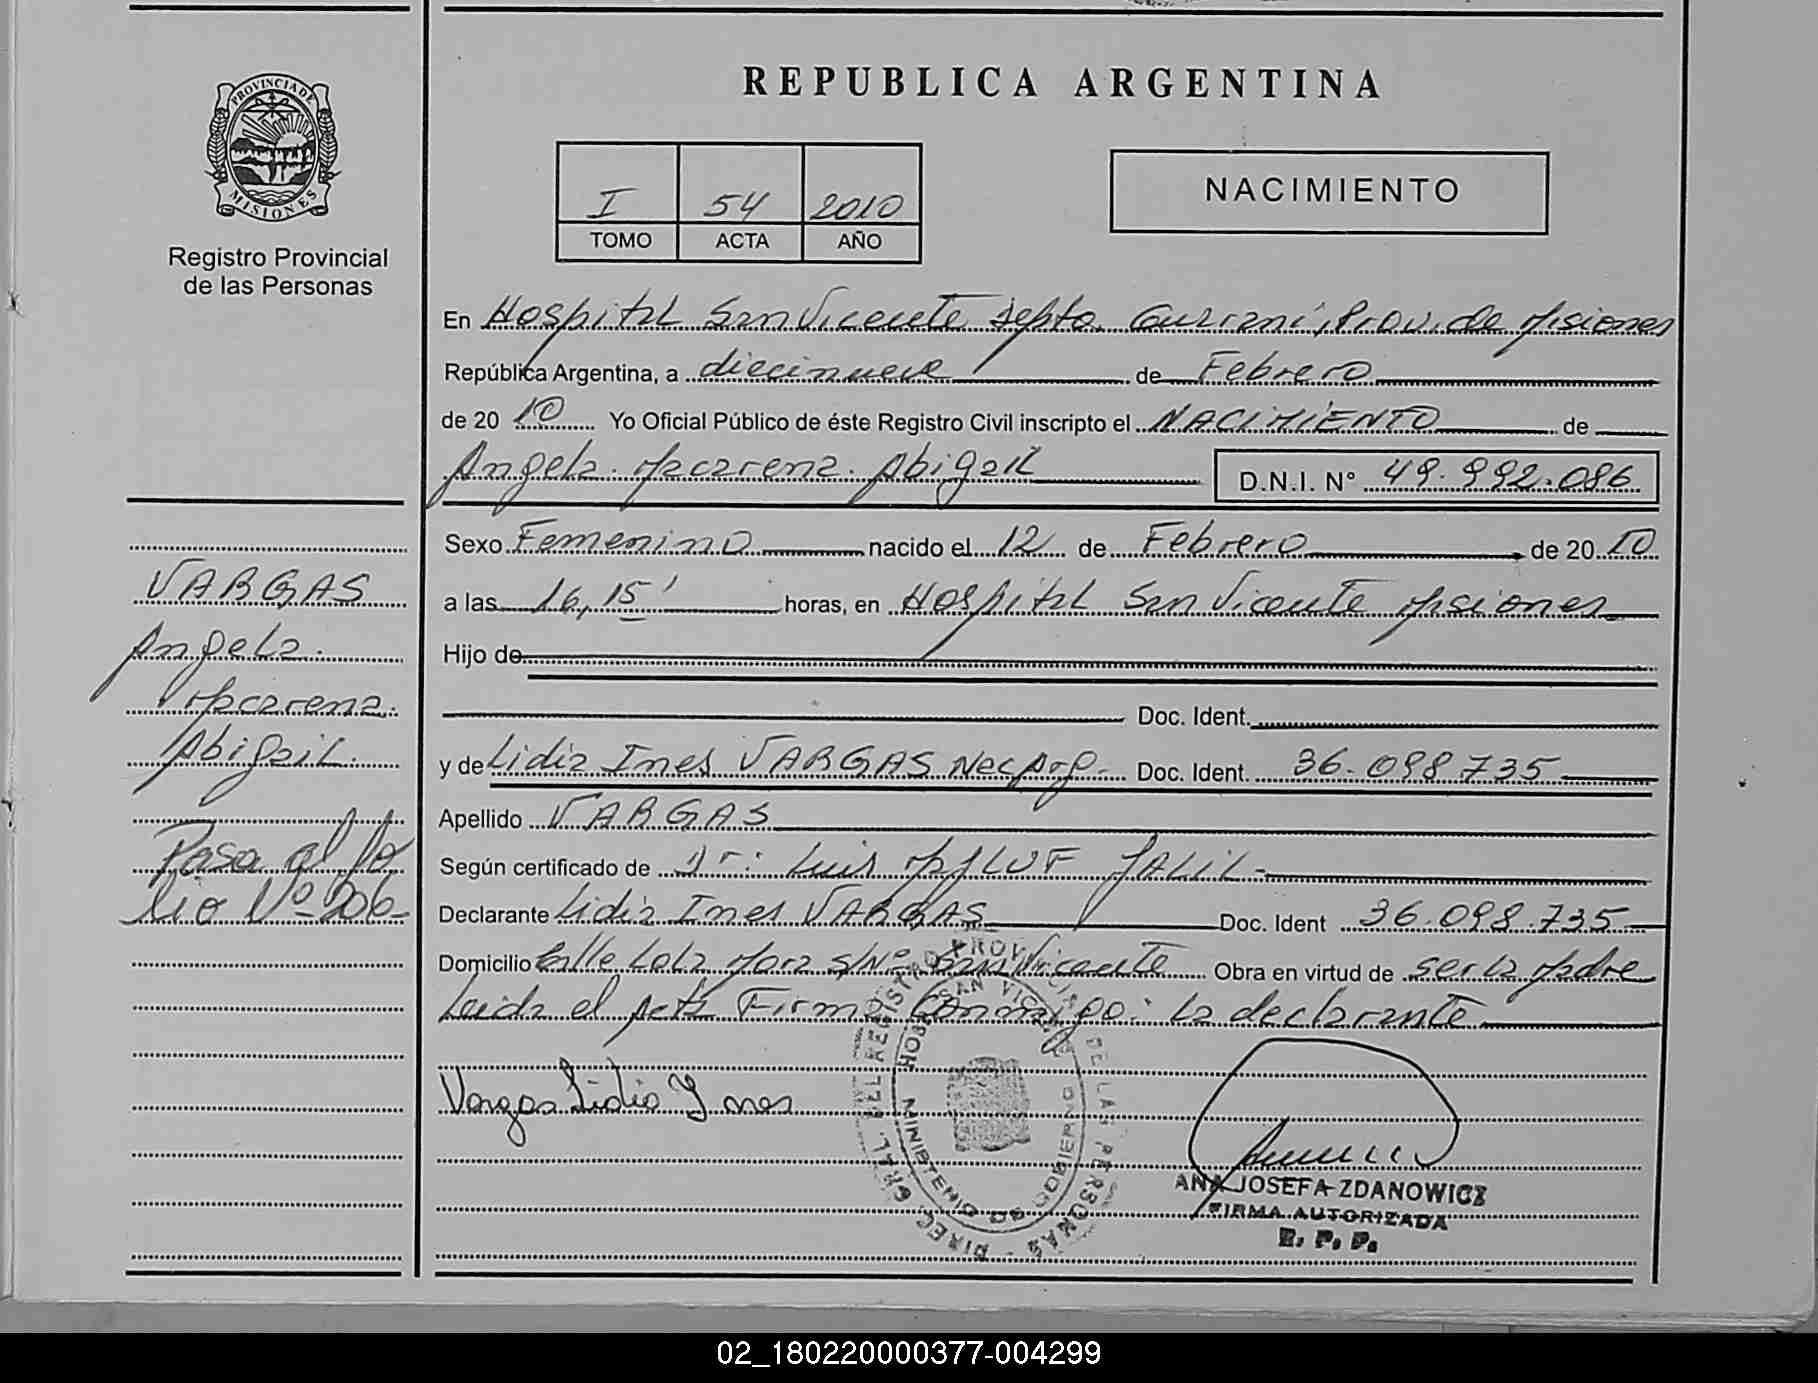 PROVINCIA DE
MISIONES
Registro Provincial
de las Personas
REPUBLICA ARGENTINA
I 54 2010
TOMO ACTA AÑO
NACIMIENTO
En Hospital San Vicente Depto. Guarani, Prov. de Misiones
República Argentina, a diecinueve de Febrero
de 2010 Yo Oficial Público de éste Registro Civil inscripto el NACIMIENTO de
Angela. Macarena. Abigail D.N.I. N° 49.992.086
Sexo Femenino nacido el 12 de Febrero de 2010
a las 16,15' horas, en Hospital San Vicente Misiones
Hijo de
Doc. Ident.
y de Lidia Ines VARGAS Nac Arg- Doc. Ident. 36.098.735
Apellido VARGAS
Según certificado de Dr: Luis JALIL-
Declarante Lidia Ines VARGAS Doc. Ident 36.098.735
Domicilio Calle Lola Mora S/Nº San Vicente Obra en virtud de ser la Madre
Leida el Acta Firma Conmigo: La declarante
Vargas Lidia Ynes
DIREC. GRAL. DEL REGISTRO PROVINCIAL DE LAS PERSONAS
SAN VICENTE
MINISTERIO DE GOBIERNO
ANA JOSEFA ZDANOWICZ
FIRMA AUTORIZADA
R. P. P.
VARGAS
Angela.
Macarena.
Abigail.
Pasa al fo
lio Nº 206-
02_180220000377-004299